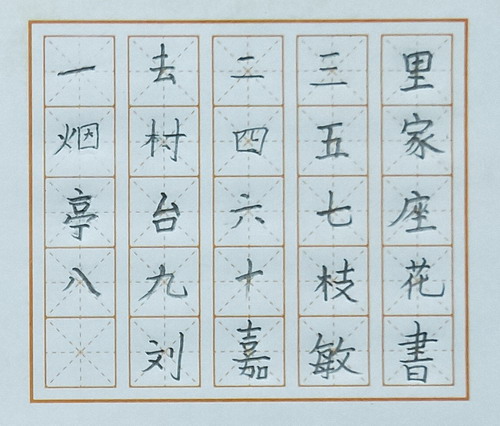 一去二三里
烟村四五家
亭台六七座
八九十枝花
刘嘉敏書